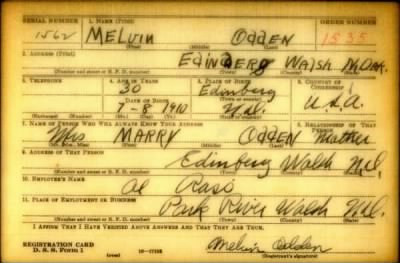 SERIAL NUMBER 1. NAME (Print) ORDER NUMBER
1562 MELVIN ODDEN 1535
(First) (Middle) (Last)
2. ADDRESS (Print)
EDINBERG WALSH N. DAK.
(Number and street or R. F. D. number) (Town) (County) (State)
3. TELEPHONE 4. AGE IN YEARS 5. PLACE OF BIRTH 6. COUNTRY OF CITIZENSHIP
30 Edinberg
DATE OF BIRTH (Town or county) U.S.A.
7-8-1910 N.D.
(Exchange) (Number) (Mo.) (Day) (Yr.) (State or country)
7. NAME OF PERSON WHO WILL ALWAYS KNOW YOUR ADDRESS 8. RELATIONSHIP OF THAT PERSON
Mrs MARRY ODDEN Mother
(Mr., Mrs., Miss) (First) (Middle) (Last)
9. ADDRESS OF THAT PERSON
Edinberg Walsh N.D.
(Number and street or R. F. D. number) (Town) (County) (State)
10. EMPLOYER'S NAME
Al
11. PLACE OF EMPLOYMENT OR BUSINESS
Park River Walsh N.D.
(Number and street or R. F. D. number) (Town) (County) (State)
I AFFIRM THAT I HAVE VERIFIED ABOVE ANSWERS AND THAT THEY ARE TRUE.
REGISTRATION CARD
D. S. S. Form 1 (over) Melvin Odden
(Registrant's signature)